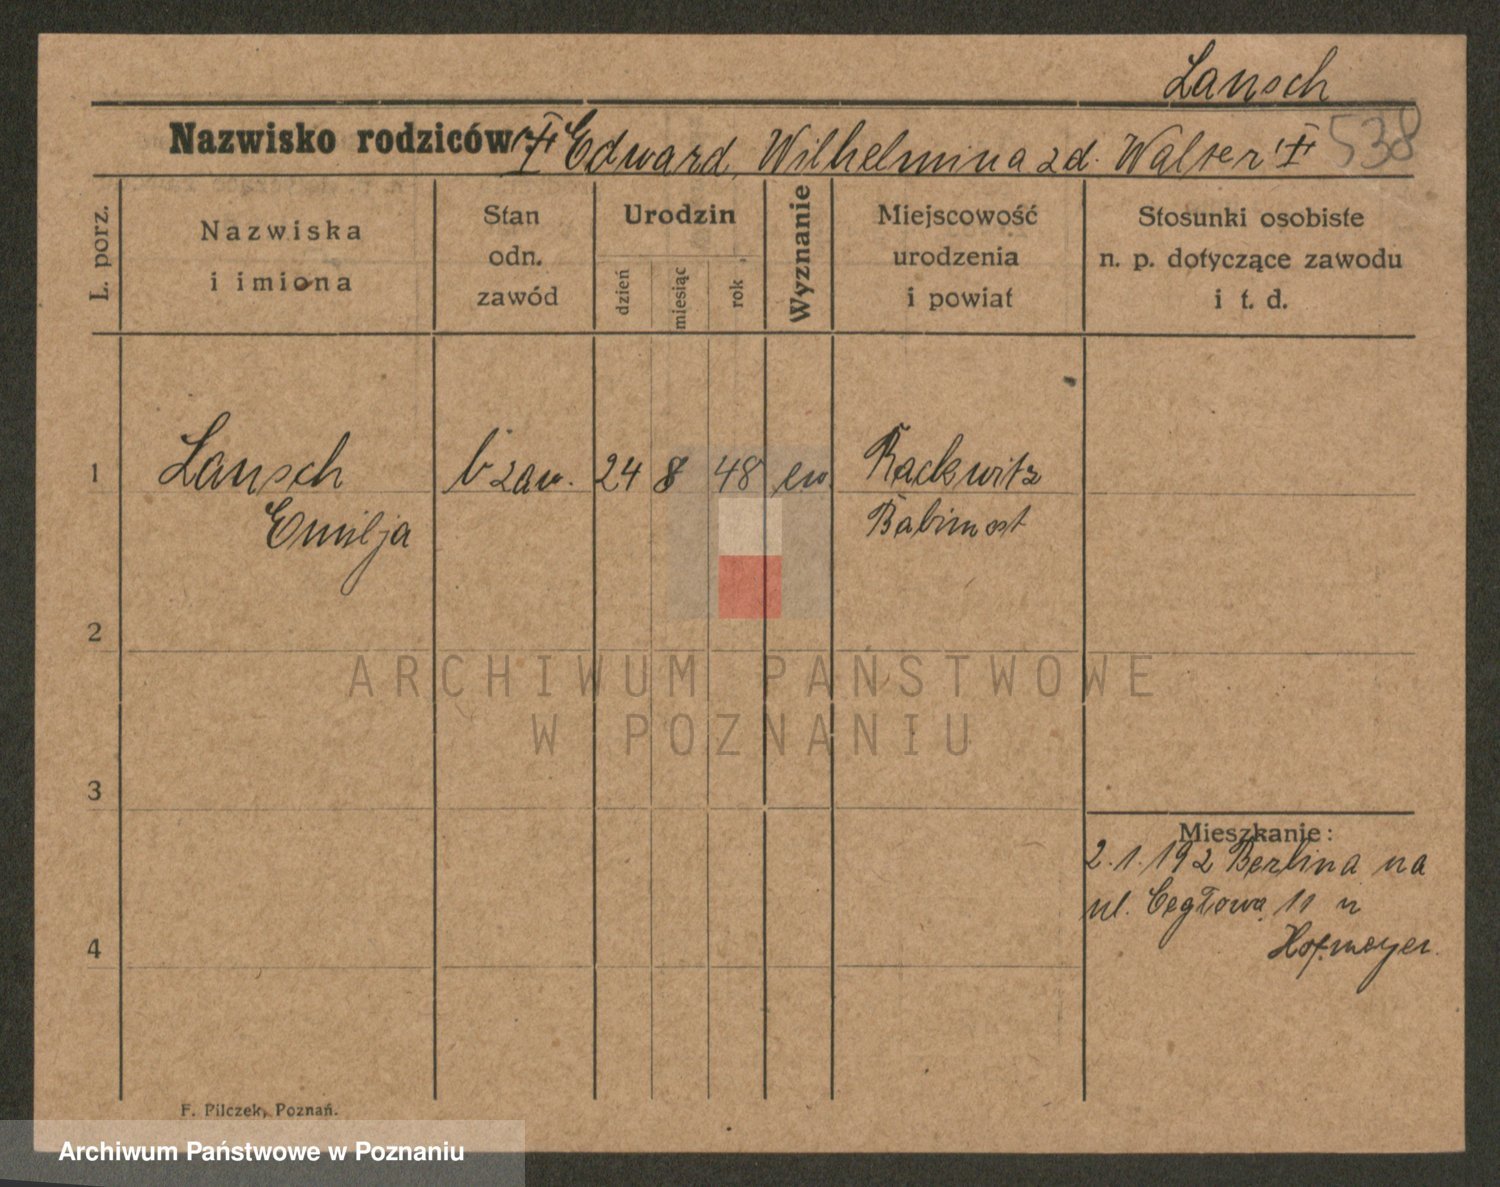 Lansch
538
Nazwisko rodziców: Edward, Wilhelmina zd. Walter
L. porz.
Nazwiska
i imiona
Stan
odn.
zawód
Urodzin
dzień
miesiąc
rok
Wyznanie
Miejscowość
urodzenia
i powiat
Stosunki osobiste
n. p. dotyczące zawodu
i t. d.
1 Lansch b zaw. 24 8 48 ew. Rackwitz
Emilja Babimost
2
ARCHIWUM PAŃSTWOWE
W POZNANIU
3
Mieszkanie:
2.1.192 Berlina na
ul. Cegłowa 11 u
Hofmeyer.
4
F. Pilczek, Poznań.
Archiwum Państwowe w Poznaniu